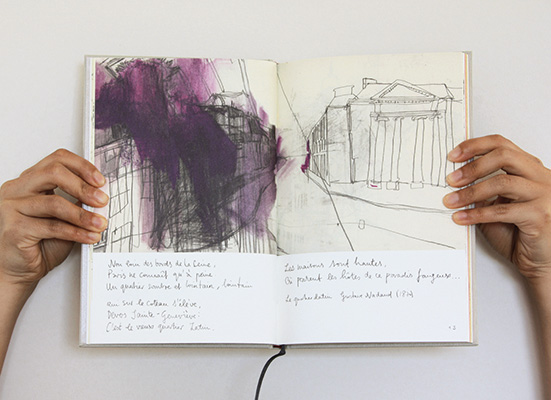 Non loin des bords de la Seine,
Paris ne connaît qu'à peine
Un quartier sombre et lointain,
Qui sur le coteau s'élève,
Devers Sainte-Geneviève :
C'est le vieux quartier Latin.
Les maisons sont hautes,
Où perchent les hôtes de ce paradis fangeux...
Le quartier latin Gustave Nadaud